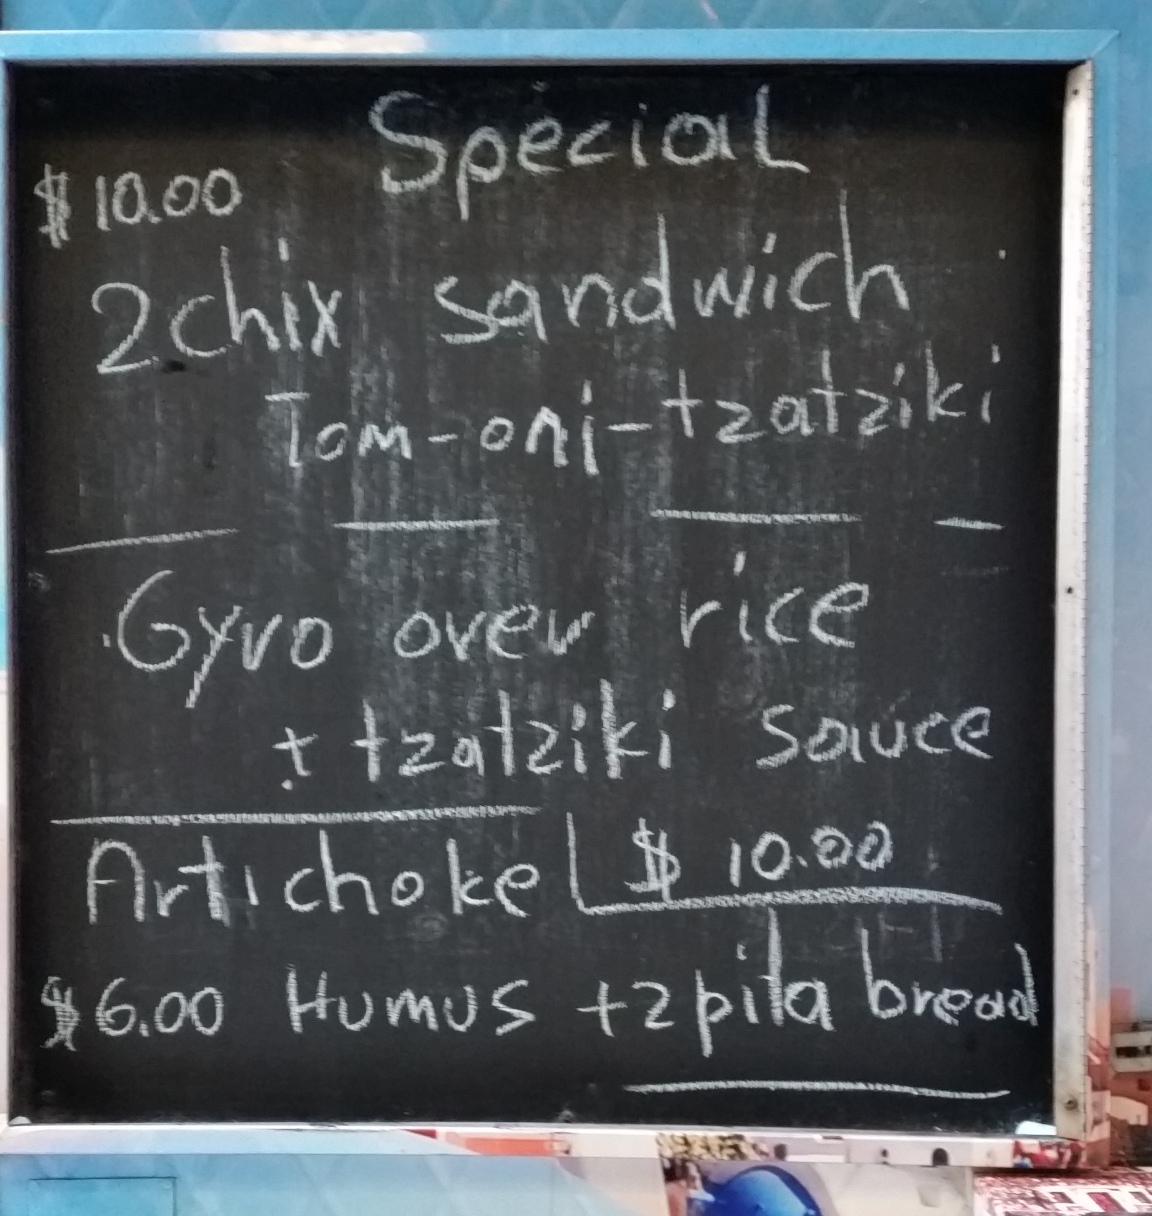 Special
$ 10.00
2 chix sandwich
Tom-oni-tzatziki
Gyro over rice
+ tzatziki sauce
Artichoke $ 10.00
$ 6.00 Humus + 2 pita bread